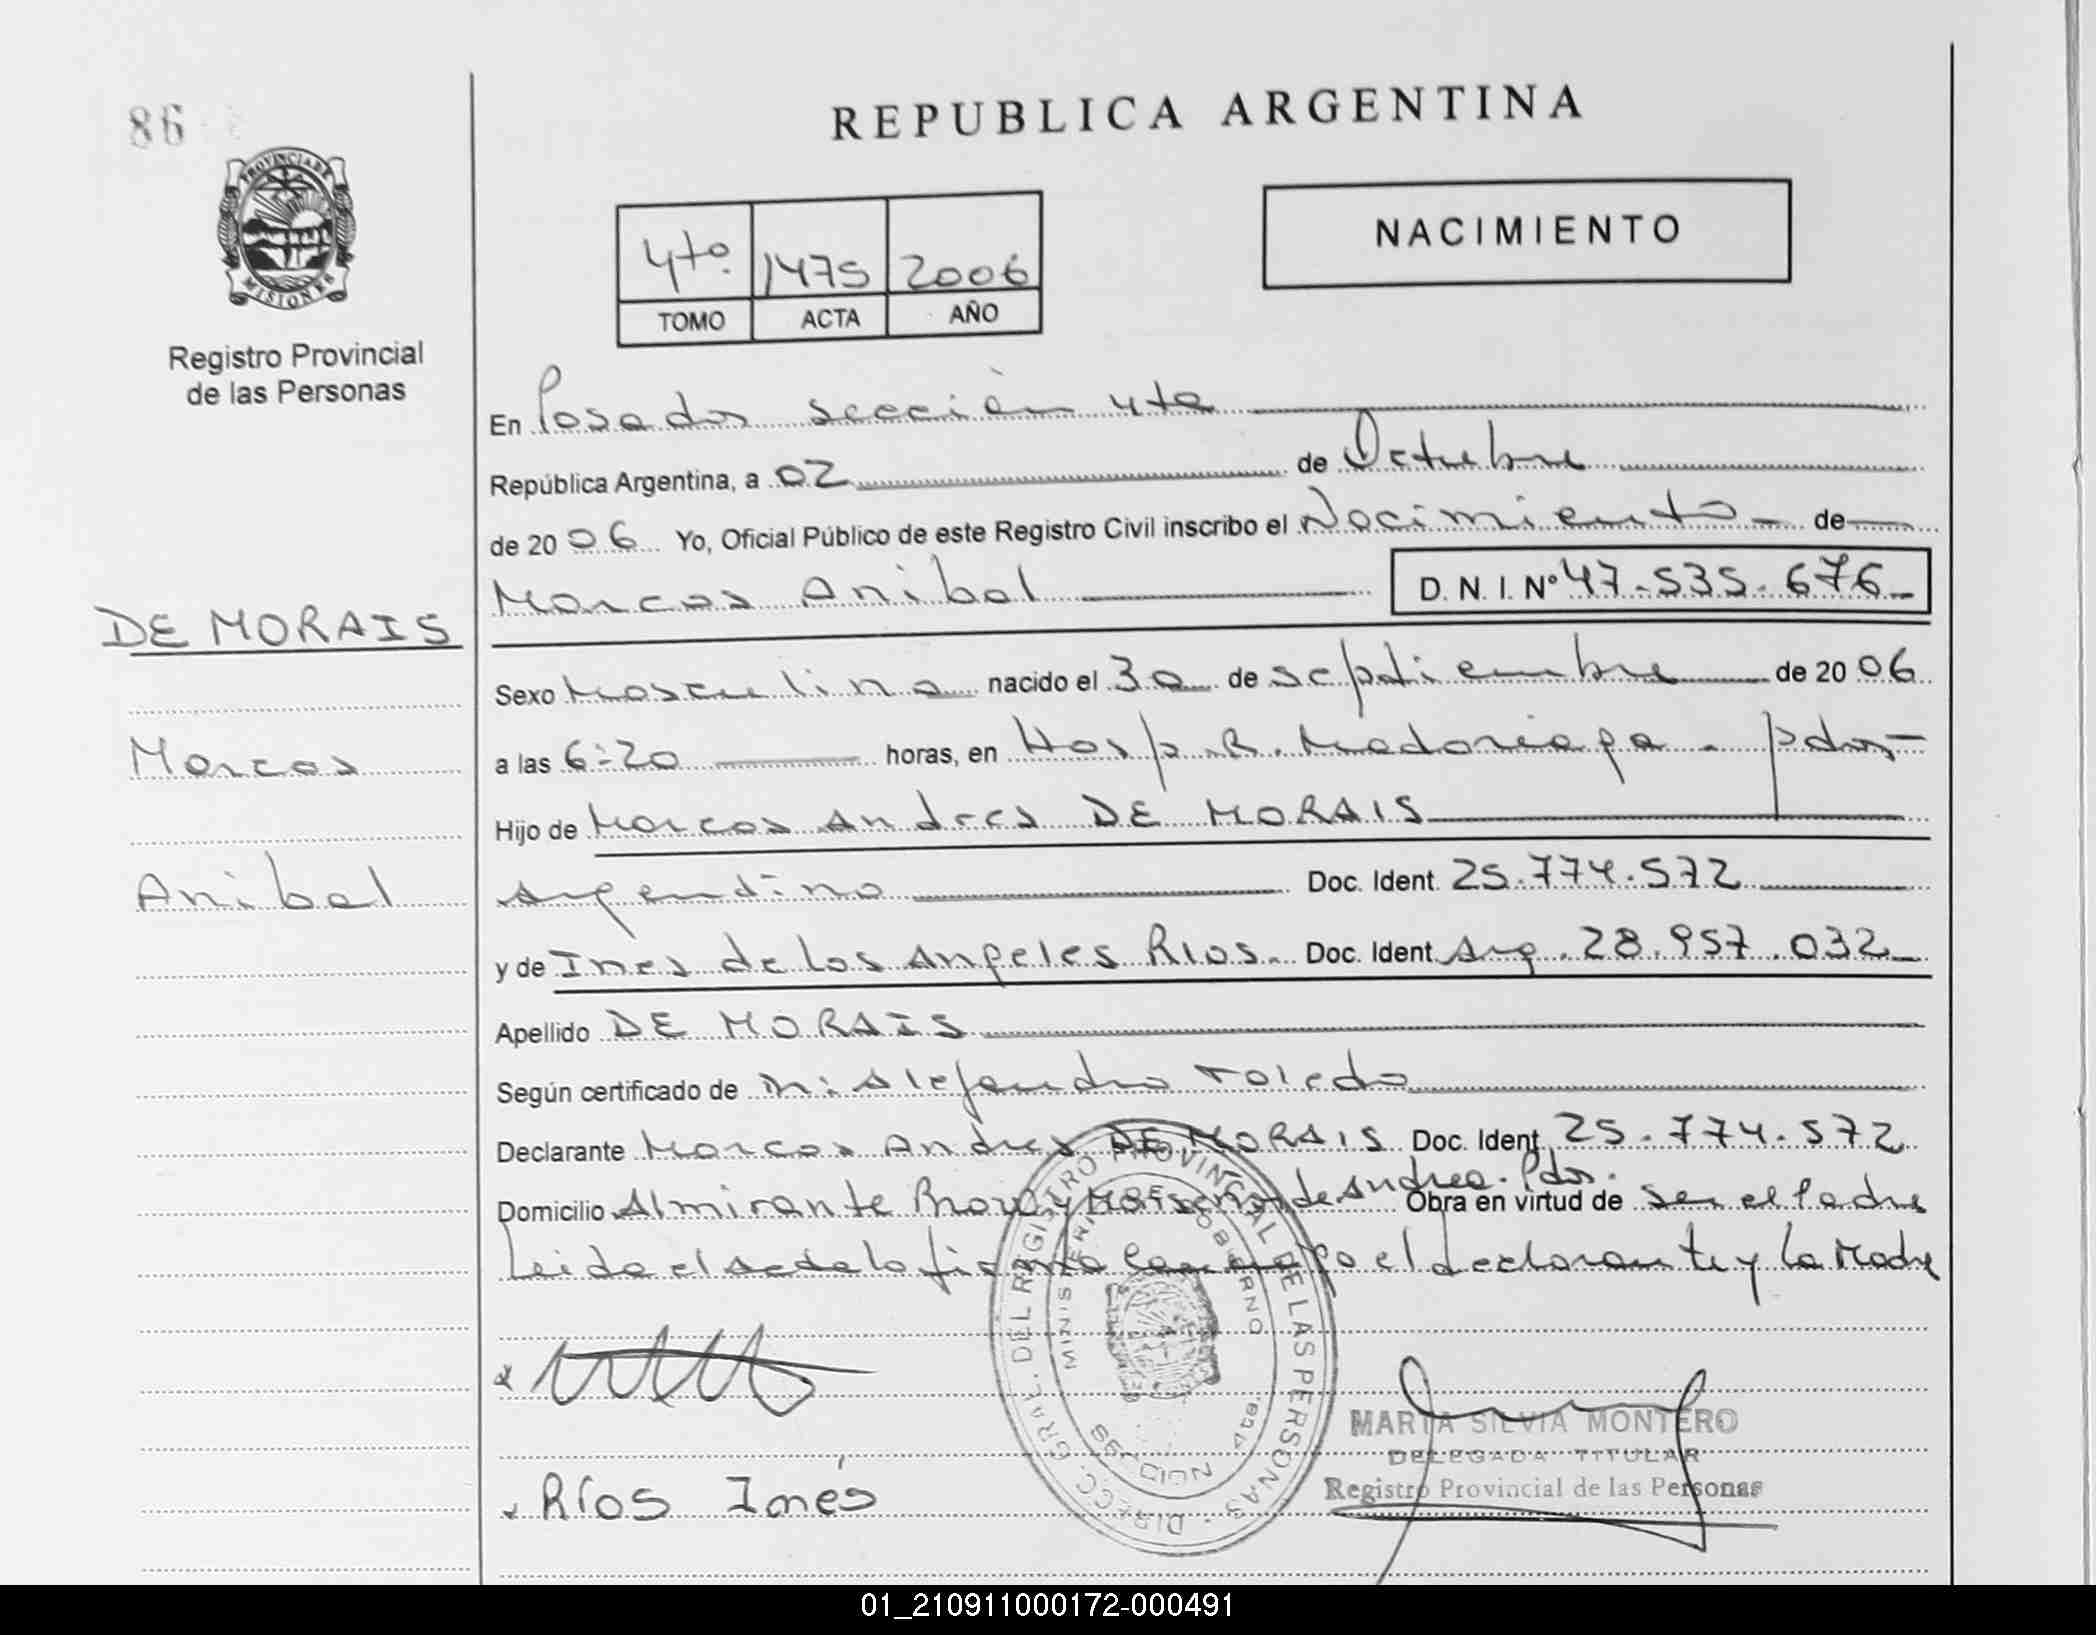 86
REPUBLICA ARGENTINA
PROVINCIA DE
MISIONES
Registro Provincial
de las Personas
4to. 1475 2006
TOMO ACTA AÑO
NACIMIENTO
En Posadas sección 4ta
República Argentina, a 02 de Octubre
de 2006 Yo, Oficial Público de este Registro Civil inscribo el Nacimiento de
Marcos Anibal D. N. I. Nº 47.535.676
DE MORAIS
Marcos
Anibal
Sexo Masculino nacido el 30 de septiembre de 2006
a las 6:20 horas, en Hosp. R. Madariaga - Pdas
Hijo de Marcos Andres DE MORAIS
Argentino Doc. Ident. 25.774.572
y de Ines de los Angeles Rios. Doc. Ident. Arg. 28.957.032
Apellido DE MORAIS
Según certificado de Alejandro Toledo
Declarante Marcos Andres DE MORAIS Doc. Ident. 25.774.572
Domicilio Almirante Brown y de Andrea. Pdas. Obra en virtud de ser el Padre
Leida el acta la firma conmigo el declarante y la Madre
Ríos Inés
DIRECC. GRAL. DEL REGISTRO PROVINCIAL DE LAS PERSONAS
MINISTERIO DE GOBIERNO
MARTA SILVIA MONTERO
DELEGADA TITULAR
Registro Provincial de las Personas
01_210911000172-000491